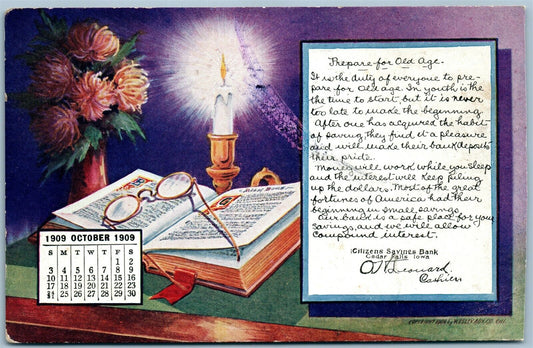 1909 OCTOBER 1909
S M T W T F S
1 2
3 4 5 6 7 8 9
10 11 12 13 14 15 16
17 18 19 20 21 22 23
24/31 25 26 27 28 29 30
Prepare for Old Age.
It is the duty of everyone to pre-
pare for old age. In youth is the
the time to start, but it is never
too late to make the beginning.
After one has acquired the habit
of saving, they find it a pleasure
and will make their bank deposits
their pride.
Money will work while you sleep
and the interest will keep piling
up the dollars. Most of the great
fortunes of America had their
beginning in small savings.
Our bank is a safe place for your
savings, and we will allow
compound interest.
Citizens Savings Bank
Cedar Falls Iowa
Leonard
Cashier
COPYRIGHT